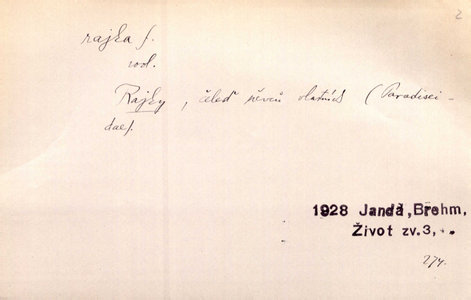 2
rajka f.
zool.
Rajky, čeleď pěvců vlastních (Paradisei-
dae).
1928 Janda, Brehm,
Život zv. 3,
274.